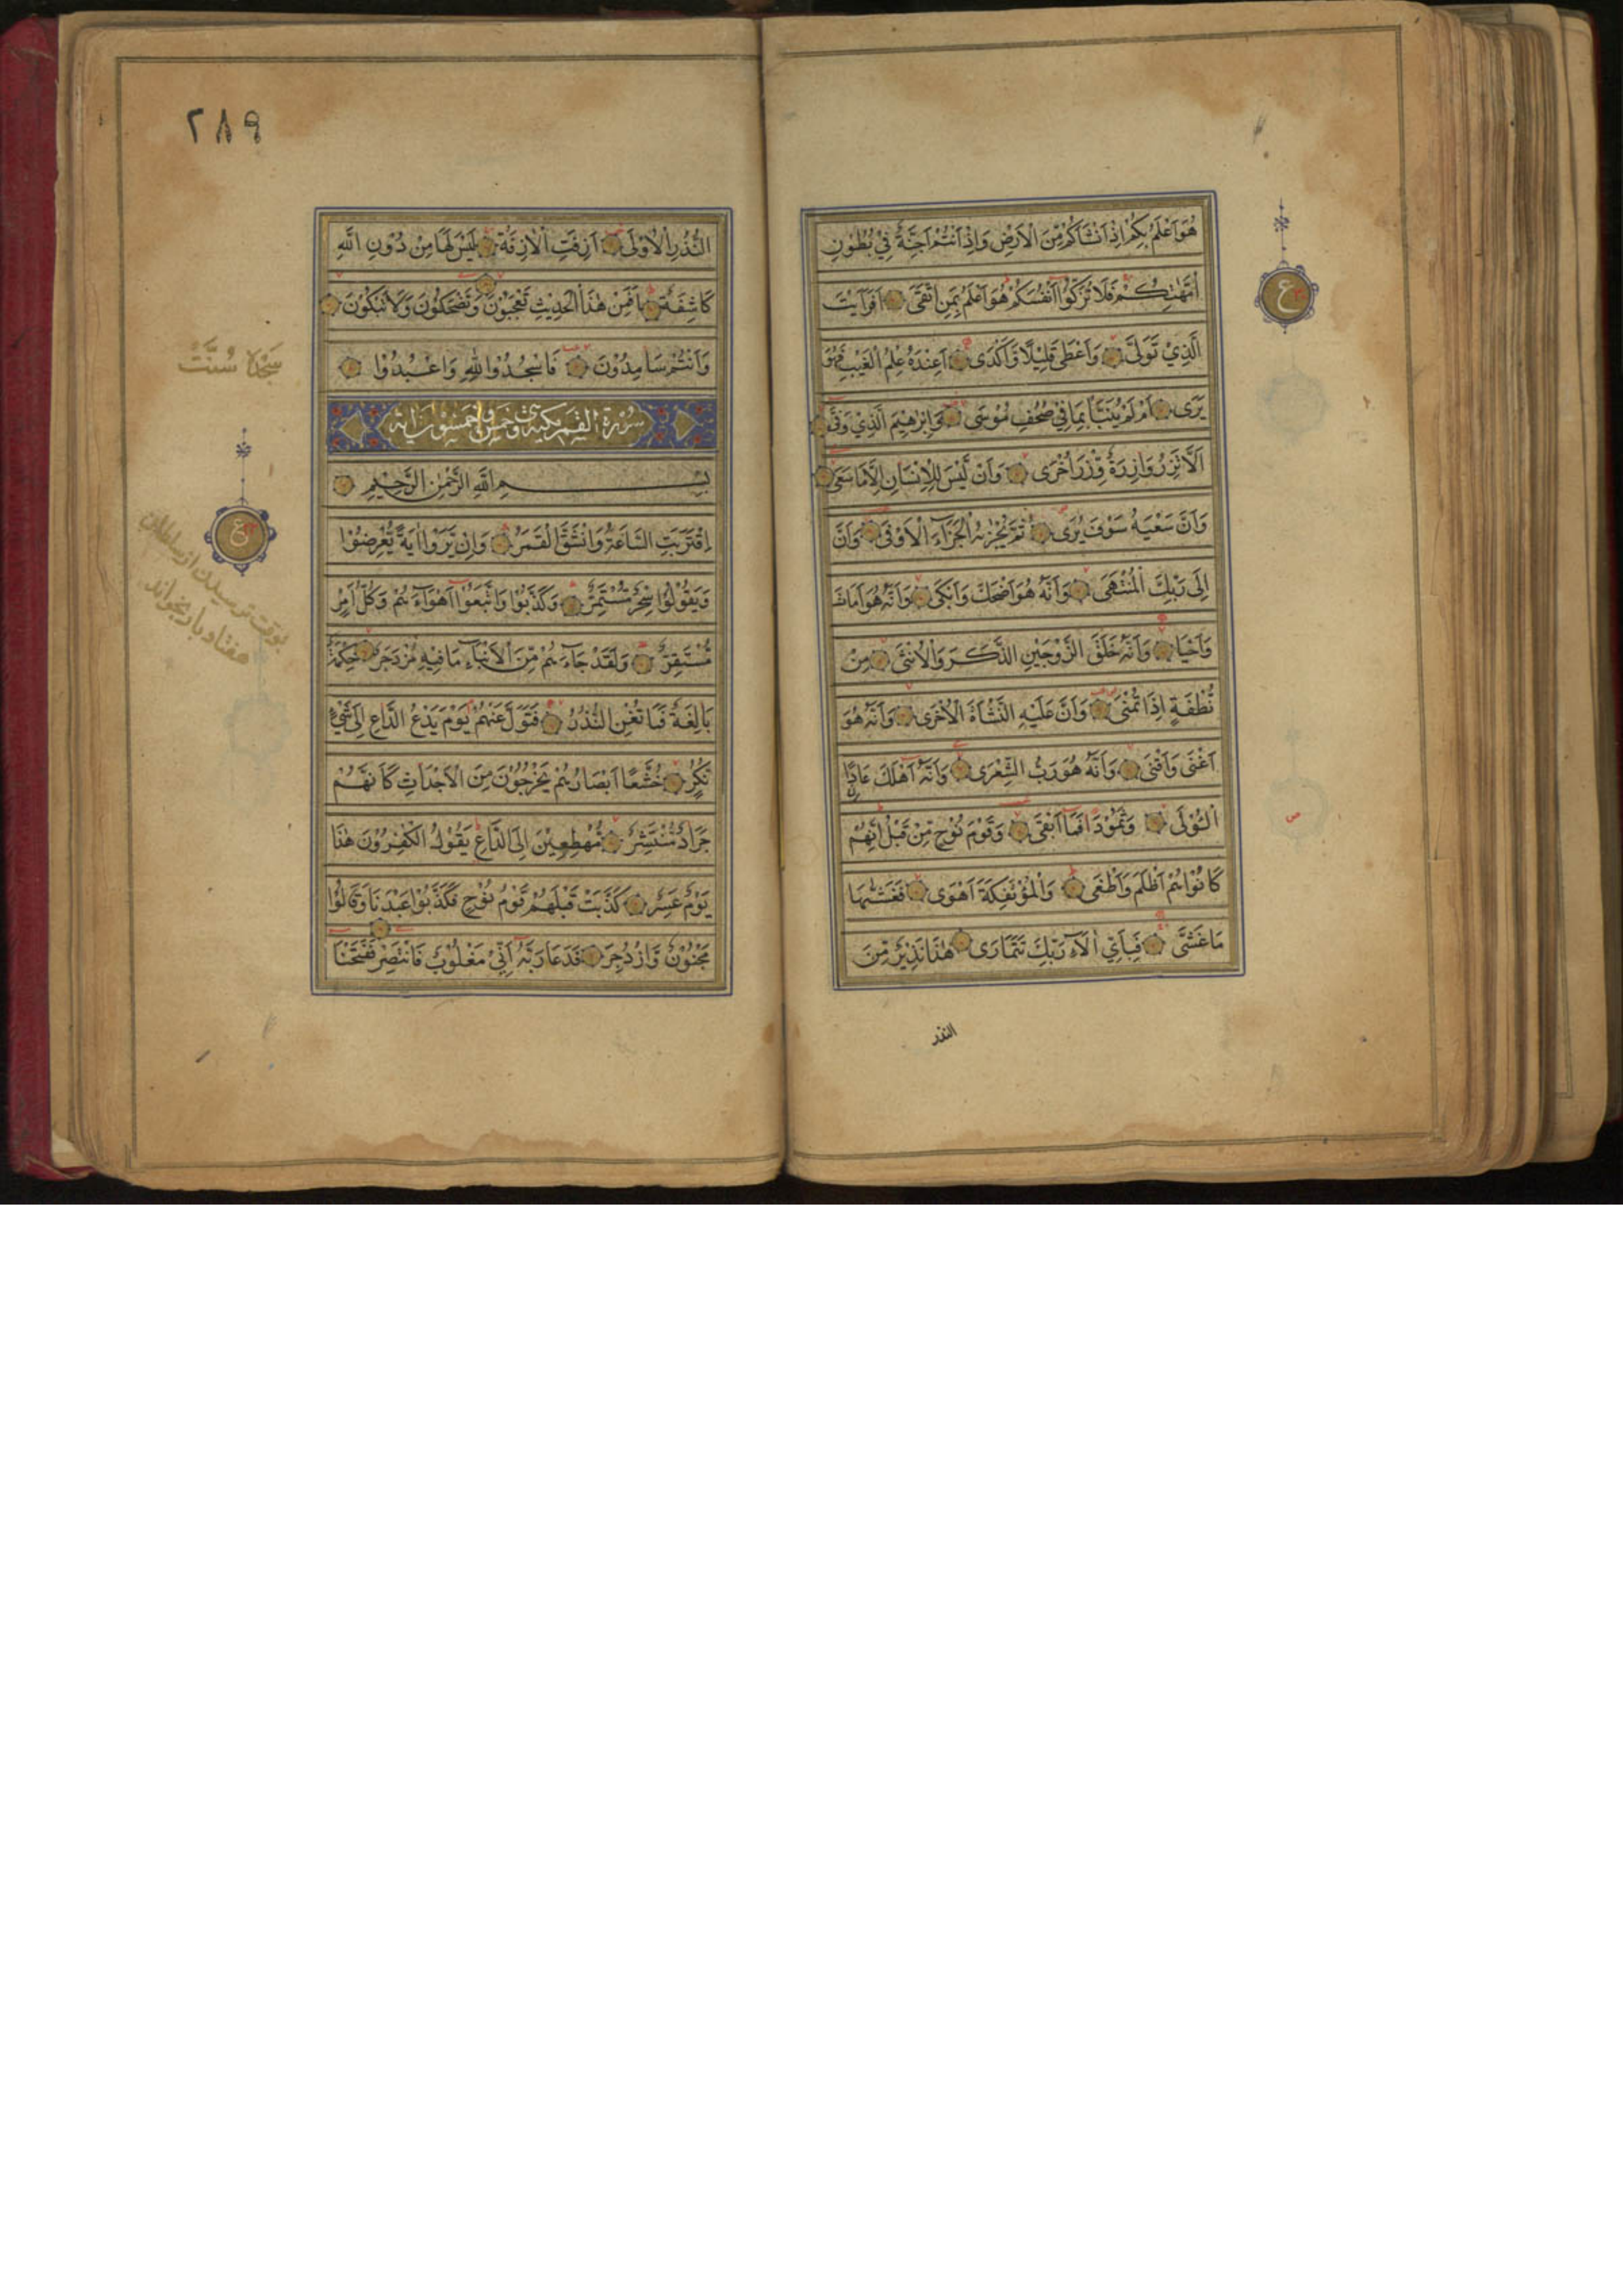 هُوَ اَعْلَمُ بِكُمْ اِذْ اَنْشَاَكُمْ مِّنَ الْاَرْضِ وَاِذْ اَنْتُمْ اَجِنَّةٌ فِيْ بُطُوْنِ
اُمَّهٰتِكُمْ فَلَا تُزَكُّوْا اَنْفُسَكُمْ هُوَ اَعْلَمُ بِمَنِ اتَّقٰى اَفَرَاَيْتَ
الَّذِيْ تَوَلّٰى وَاَعْطٰى قَلِيْلًا وَّاَكْدٰى اَعِنْدَهٗ عِلْمُ الْغَيْبِ فَهُوَ
يَرٰى اَمْ لَمْ يُنَبَّاْ بِمَا فِيْ صُحُفِ مُوْسٰى وَاِبْرٰهِيْمَ الَّذِيْ وَفّٰى
اَلَّا تَزِرُ وَازِرَةٌ وِّزْرَ اُخْرٰى وَاَنْ لَّيْسَ لِلْاِنْسَانِ اِلَّا مَا سَعٰى
وَاَنَّ سَعْيَهٗ سَوْفَ يُرٰى ثُمَّ يُجْزٰىهُ الْجَزَآءَ الْاَوْفٰى وَاَنَّ
اِلٰى رَبِّكَ الْمُنْتَهٰى وَاَنَّهٗ هُوَ اَضْحَكَ وَاَبْكٰى وَاَنَّهٗ هُوَ اَمَاتَ
وَاَحْيَا وَاَنَّهٗ خَلَقَ الزَّوْجَيْنِ الذَّكَرَ وَالْاُنْثٰى مِنْ
نُّطْفَةٍ اِذَا تُمْنٰى وَاَنَّ عَلَيْهِ النَّشْاَةَ الْاُخْرٰى وَاَنَّهٗ هُوَ
اَغْنٰى وَاَقْنٰى وَاَنَّهٗ هُوَ رَبُّ الشِّعْرٰى وَاَنَّهٗ اَهْلَكَ عَادًا
الْاُوْلٰى وَثَمُوْدَا فَمَا اَبْقٰى وَقَوْمَ نُوْحٍ مِّنْ قَبْلُ اِنَّهُمْ
كَانُوْا هُمْ اَظْلَمَ وَاَطْغٰى وَالْمُؤْتَفِكَةَ اَهْوٰى فَغَشّٰىهَا
مَا غَشّٰى فَبِاَيِّ اٰلَآءِ رَبِّكَ تَتَمَارٰى هٰذَا نَذِيْرٌ مِّنَ
النذر
ع
٢٨٩
النُّذُرِ الْاُوْلٰى اَزِفَتِ الْاٰزِفَةُ لَيْسَ لَهَا مِنْ دُوْنِ اللّٰهِ
كَاشِفَةٌ اَفَمِنْ هٰذَا الْحَدِيْثِ تَعْجَبُوْنَ وَتَضْحَكُوْنَ وَلَا تَبْكُوْنَ
وَاَنْتُمْ سَامِدُوْنَ فَاسْجُدُوْا لِلّٰهِ وَاعْبُدُوْا
سُوْرَة القمر مكية وهى خمس وخمسون اية
بِسْمِ اللّٰهِ الرَّحْمٰنِ الرَّحِيْمِ
اِقْتَرَبَتِ السَّاعَةُ وَانْشَقَّ الْقَمَرُ وَاِنْ يَّرَوْا اٰيَةً يُّعْرِضُوْا
وَيَقُوْلُوْا سِحْرٌ مُّسْتَمِرٌّ وَكَذَّبُوْا وَاتَّبَعُوْا اَهْوَآءَهُمْ وَكُلُّ اَمْرٍ
مُّسْتَقِرٌّ وَلَقَدْ جَآءَهُمْ مِّنَ الْاَنْبَآءِ مَا فِيْهِ مُزْدَجَرٌ حِكْمَةٌ
بَالِغَةٌ فَمَا تُغْنِ النُّذُرُ فَتَوَلَّ عَنْهُمْ يَوْمَ يَدْعُ الدَّاعِ اِلٰى شَيْءٍ
نُّكُرٍ خُشَّعًا اَبْصَارُهُمْ يَخْرُجُوْنَ مِنَ الْاَجْدَاثِ كَاَنَّهُمْ
جَرَادٌ مُّنْتَشِرٌ مُّهْطِعِيْنَ اِلَى الدَّاعِ يَقُوْلُ الْكٰفِرُوْنَ هٰذَا
يَوْمٌ عَسِرٌ كَذَّبَتْ قَبْلَهُمْ قَوْمُ نُوْحٍ فَكَذَّبُوْا عَبْدَنَا وَقَالُوْا
مَجْنُوْنٌ وَّازْدُجِرَ فَدَعَا رَبَّهٗ اَنِّيْ مَغْلُوْبٌ فَانْتَصِرْ فَفَتَحْنَا
سَجْدَهٔ سُنَّت
ع
بوقت ترسیدن از سلطان
هفتاد بار بخواند